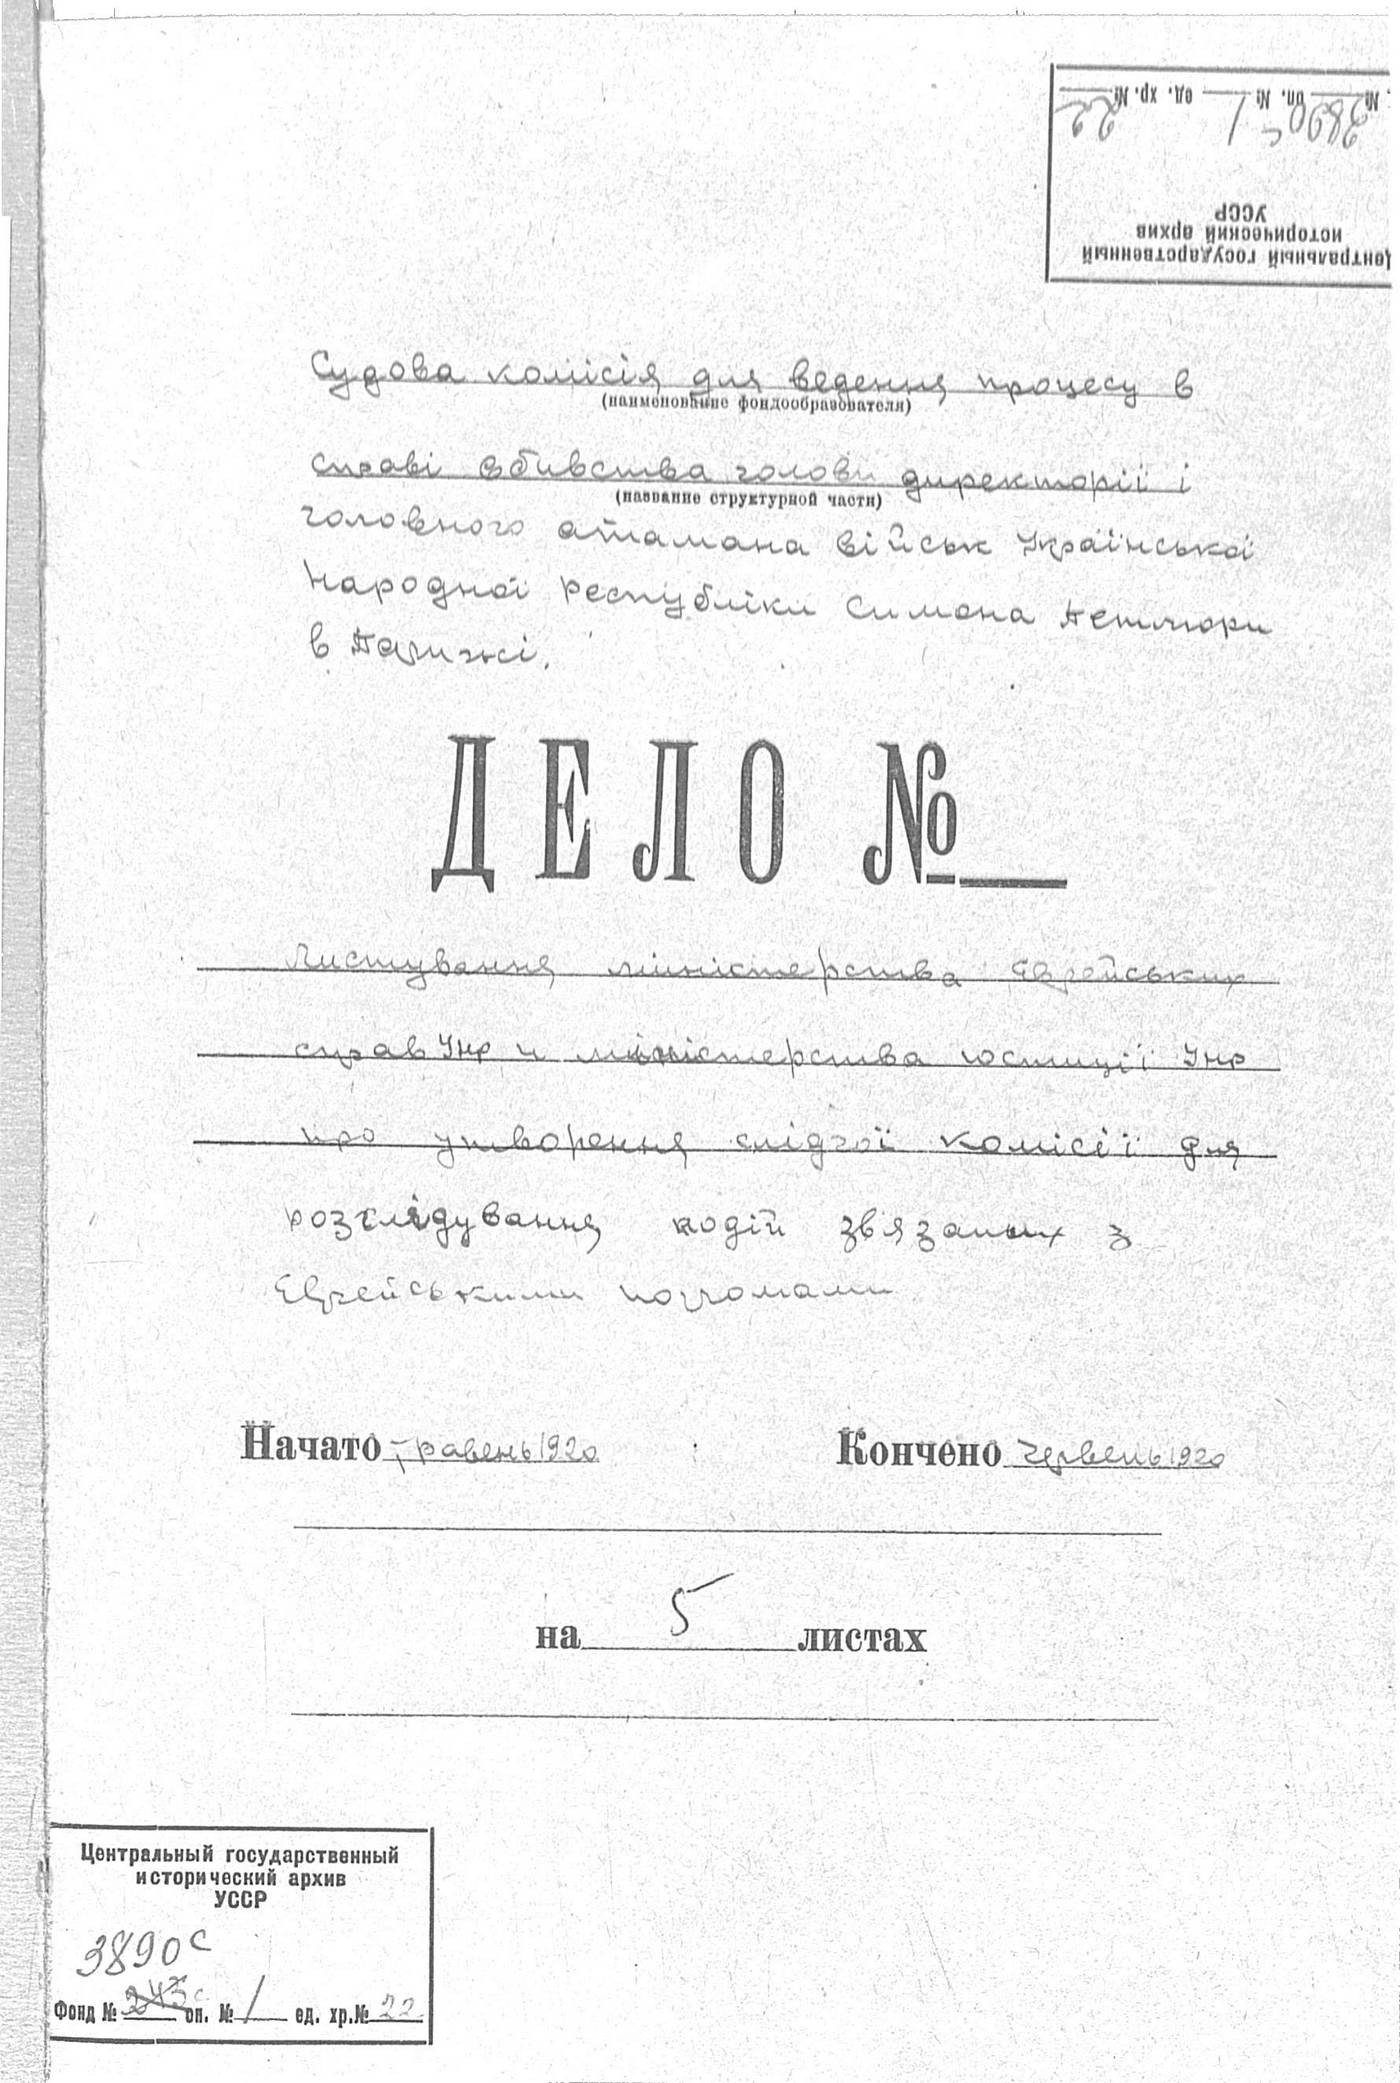 № 3890с оп. № 1 ед. хр. № 22
Центральный государственный
исторический архив
УССР
Судова комісія для ведення процесу в
(наименование фондообразователя)
справі вбивства голови директорії і
(название структурной части)
головного отамана військ Української
Народної Республіки Симона Петлюри
в Парижі.
ДЕЛО №
Листування міністерства єврейських
справ УНР и міністерства юстиції УНР
про утворення слідчої комісії для
розслідування подій звязаних з
єврейськими погромами
Начато травень 1920 Кончено червень 1920
на 5 листах
Центральный государственный
исторический архив
УССР
3890с
Фонд № 243с оп. № 1 ед. хр. № 22